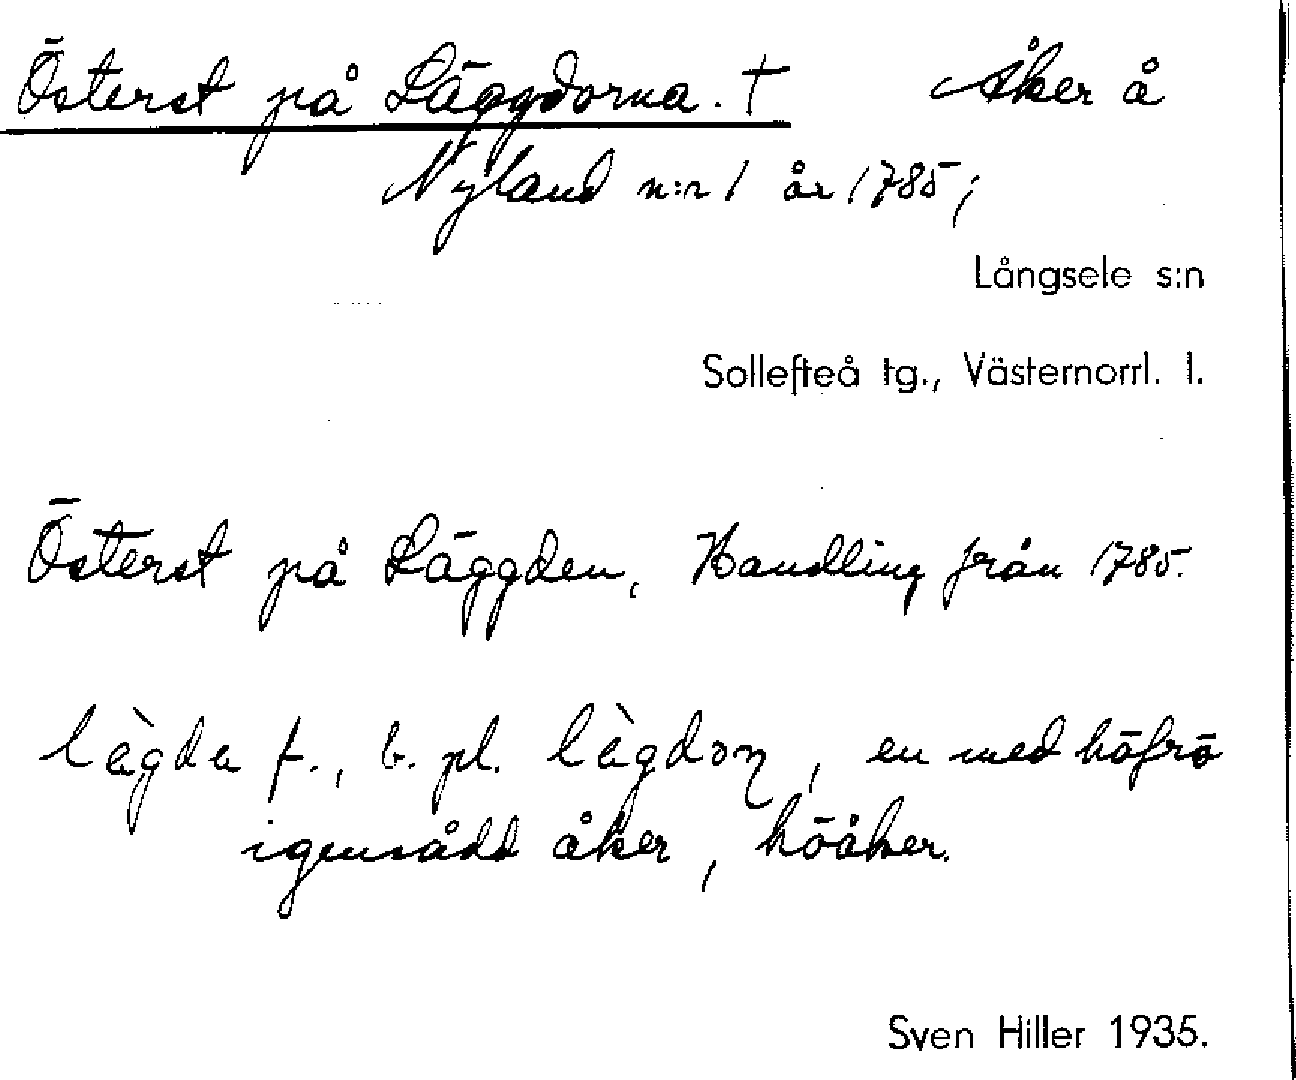 Österst på Läggdorna. † Åker å
Nyland n:r 1 år 1785;
Långsele s:n
Sollefteå tg., Västernorrl. l.
Österst på Läggden, Handling från 1785.
lègda f., b. pl. lègdoɳ, en med höfrö
igensådd åker, höåker.
Sven Hiller 1935.